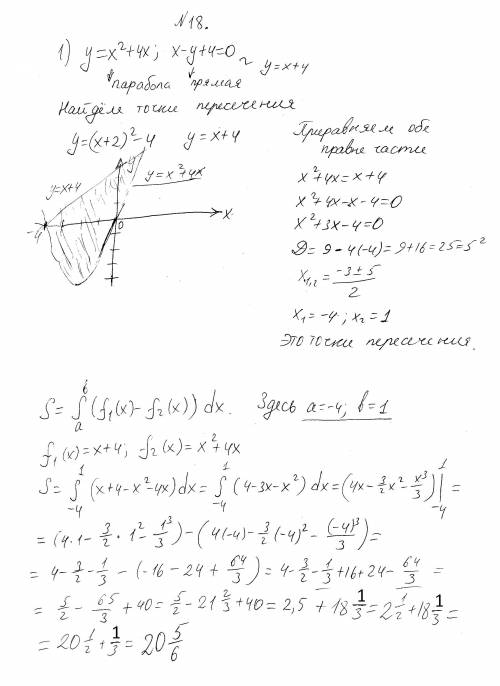 N18.
1) y=x²+4x; x-y+4=0 ~ y=x+4
парабола прямая
Найдём точки пересечения
y=(x+2)²-4 y=x+4
y=x+4
y
y=x²+4x
-4
0
x
Приравняем обе
правые части
x²+4x=x+4
x²+4x-x-4=0
x²+3x-4=0
D=9-4(-4)=9+16=25=5²
x₁,₂=(-3±5)/2
x₁=-4; x₂=1
Это точки пересечения.
S=∫ₐᵇ(f₁(x)-f₂(x))dx. Здесь a=-4; b=1
f₁(x)=x+4; f₂(x)=x²+4x
S=∫₋₄¹(x+4-x²-4x)dx=∫₋₄¹(4-3x-x²)dx=(4x-3/2x²-x³/3)|₋₄¹=
=(4·1-3/2·1²-1³/3)-(4(-4)-3/2(-4)²-(-4)³/3)=
=4-3/2-1/3-(-16-24+64/3)=4-3/2-1/3+16+24-64/3=
=5/2-65/3+40=5/2-21 2/3+40=2,5+18 1/3=2 1/2+18 1/3=
=20 1/2+1/3=20 5/6